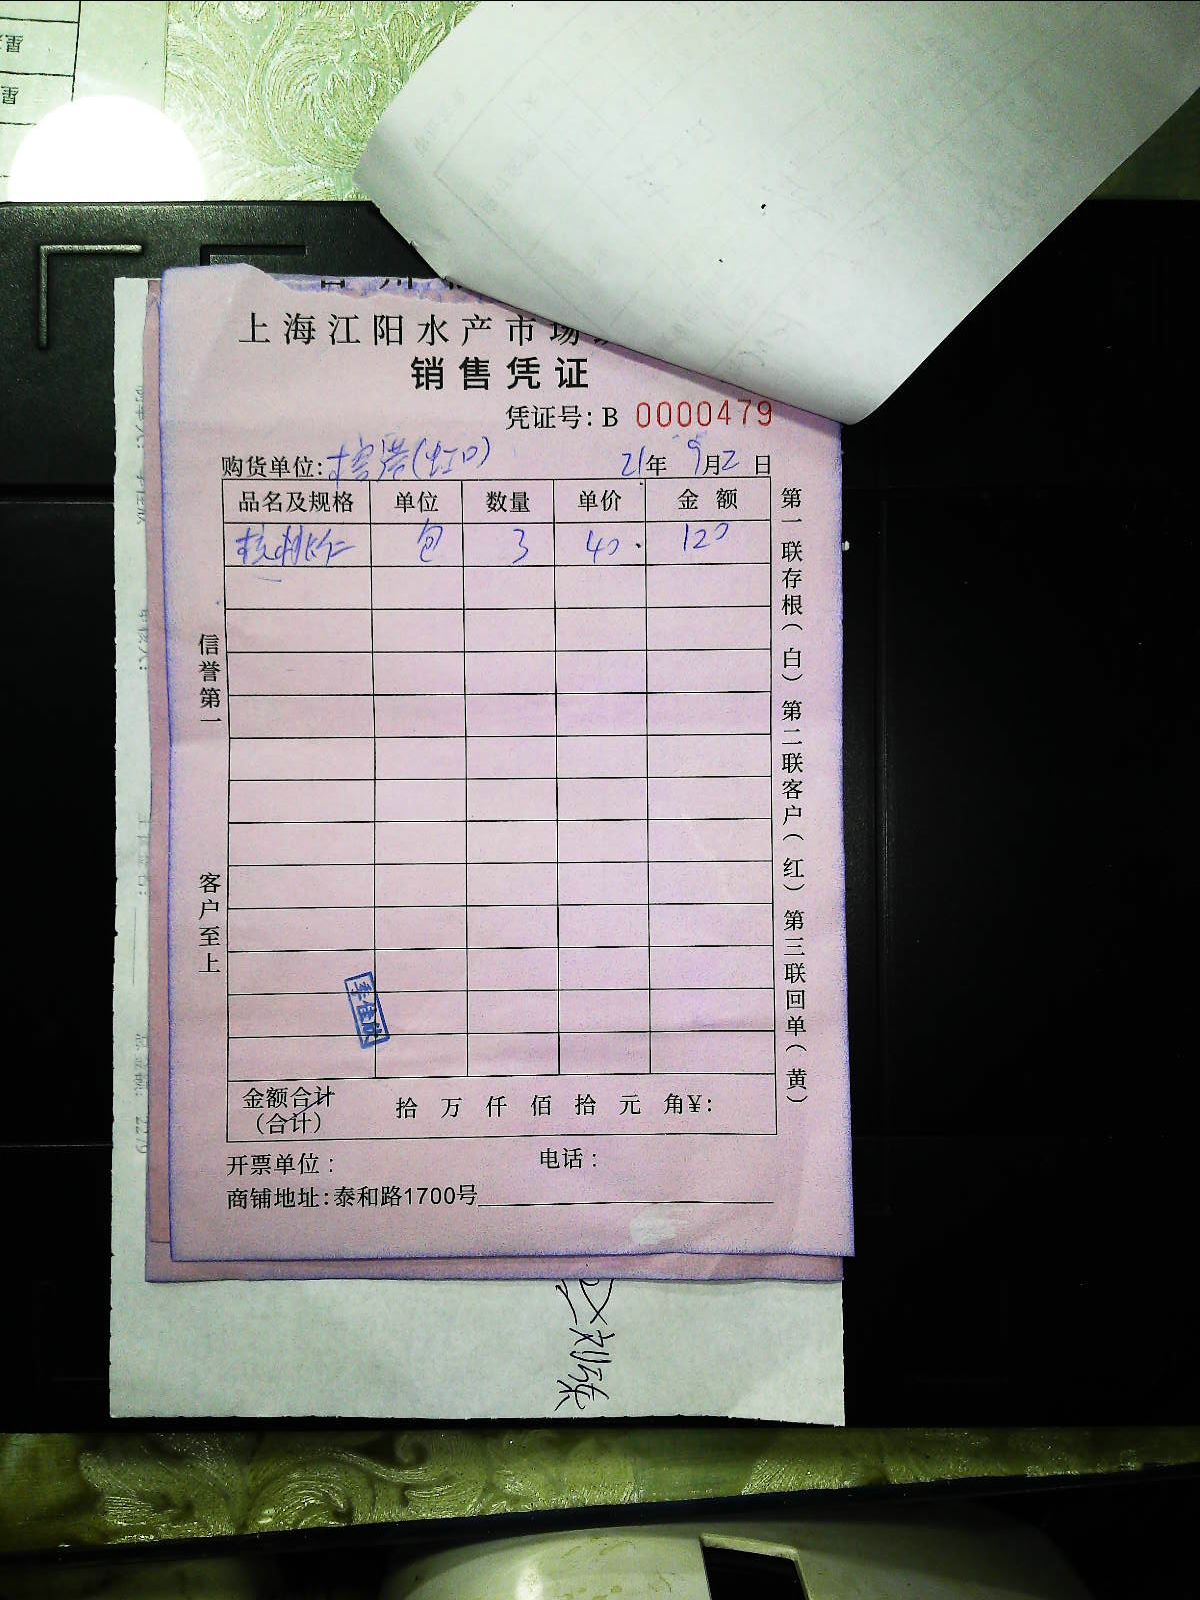 上海江阳水产市场
销售凭证
凭证号: B 0000479
购货单位: (虹口) 21年 9月2日
品名及规格 单位 数量 单价 金额
核桃仁 包 3 40. 120
信誉第一
客户至上
第一联存根(白) 第二联客户(红) 第三联回单(黄)
金额合计 拾 万 仟 佰 拾 元 角¥:
(合计)
开票单位: 电话:
商铺地址: 泰和路1700号